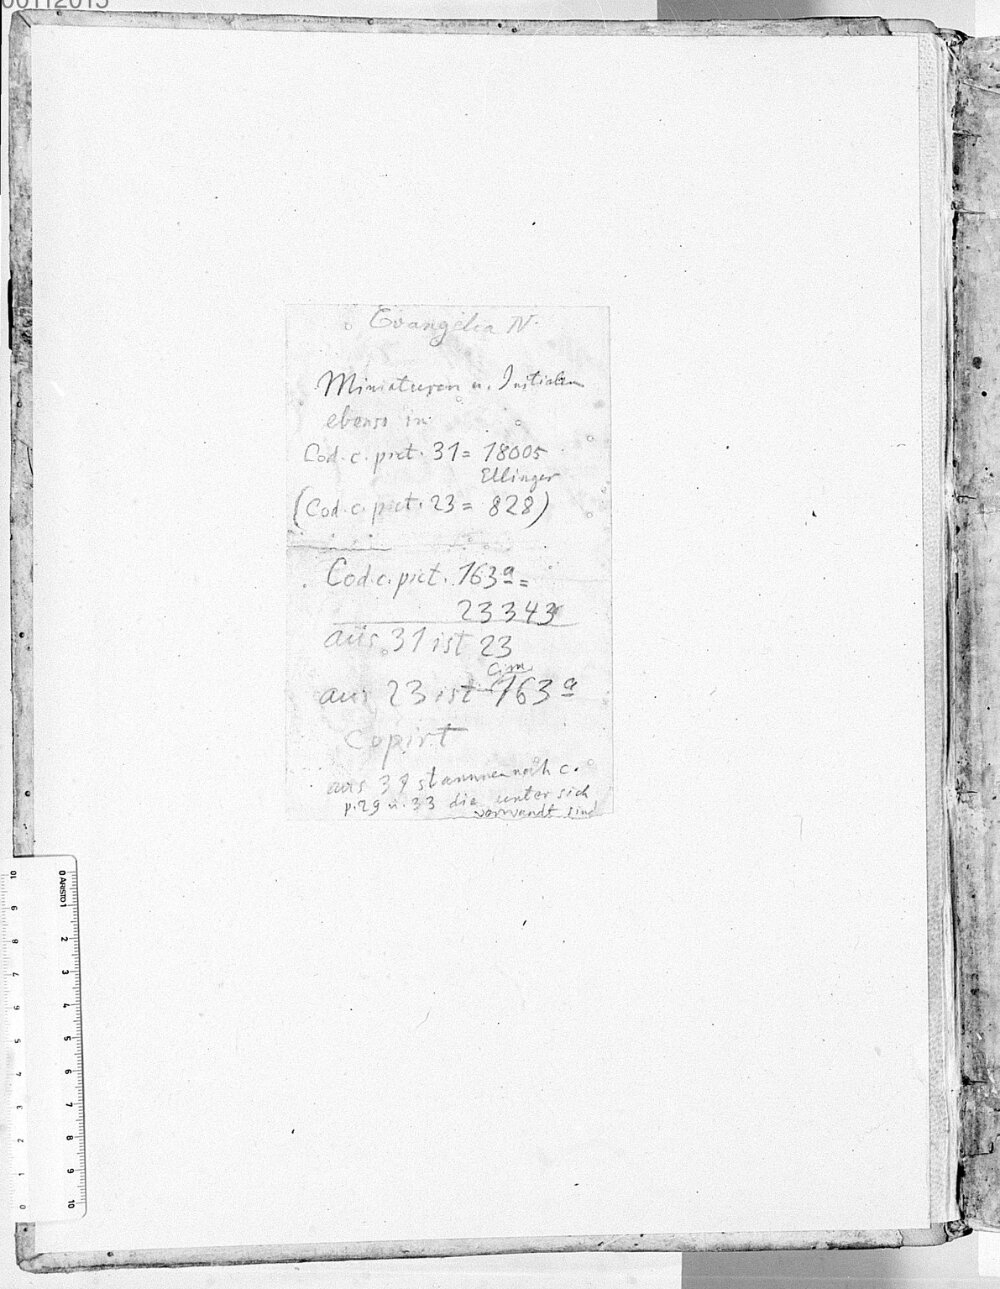 00112013
Evangelia IV.
Miniaturen u. Initialen
ebenso in:
Cod. c. pict. 31 = 18005
Ellinger
(Cod. c. pict. 23 = 828)
Cod. c. pict. 163a =
23343
aus 31 ist 23
Cim.
aus 23 ist 163a
copirt
aus 31 stammen noch c.
p. 29 u. 33 die unter sich
verwandt sind
0 ARISTO 1
2
3
4
5
6
7
8
9
10
10
9
8
7
6
5
4
3
2
1
0